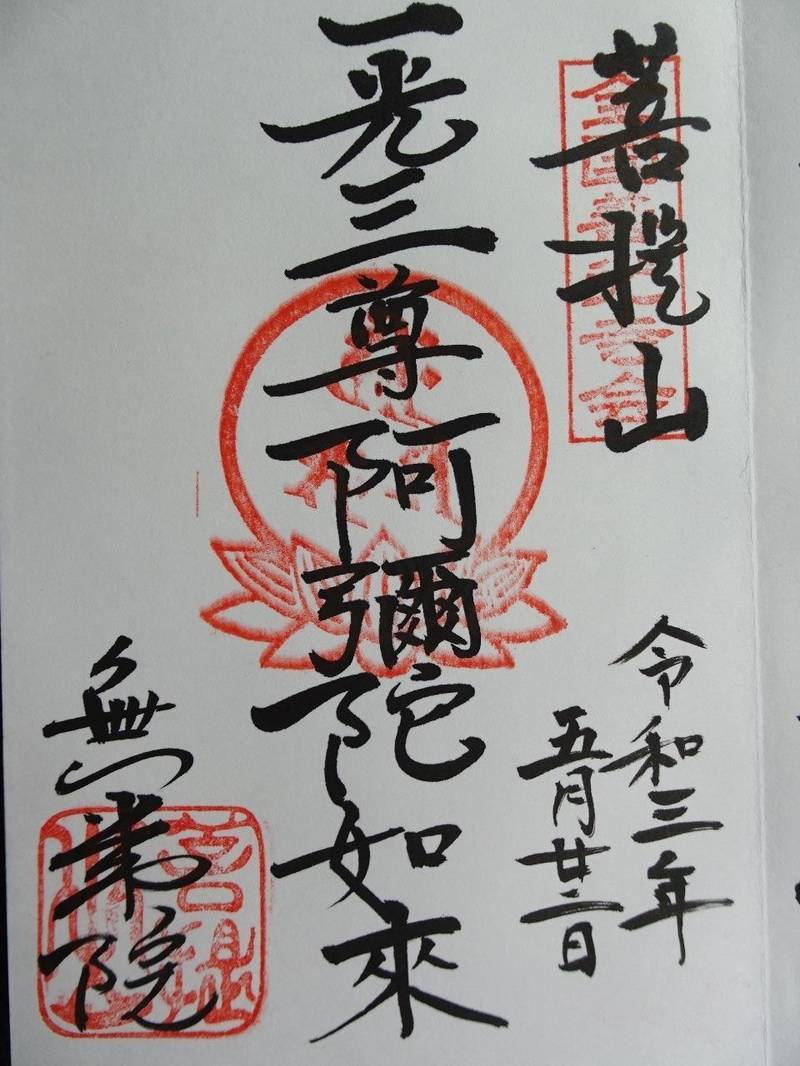 菩提山
令和三年
五月廿二日
一光三尊阿彌陀如來
無量院